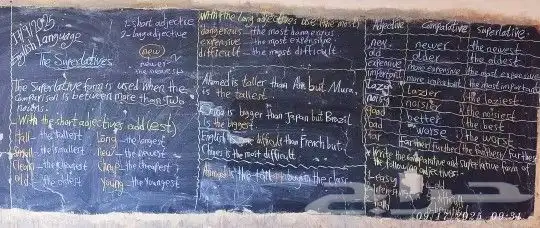 English Language
The Superlatives
1- short adjective
2- long adjective
new
newer
the newest
The Superlative form is used when the
comparison is between more than two
nouns.
- With the short adjectives add (est)
tall - the tallest
small - the smallest
clean - the cleanest
old - the oldest
long - the longest
new - the newest
cheap - the cheapest
young - the youngest
With the long adjectives use (the most)
dangerous - the most dangerous
expensive - the most expensive
difficult - the most difficult
Ahmed is taller than Ali but Mura
is the tallest
China is bigger than Japan but Brazil
is the biggest
English difficult than French but
Chines is the most difficult
Ahmed is the tallest boy in the class
Adjective comparative superlative
new newer the newest
old older the oldest
expensive more expensive the most expensive
important more important the most important
lazy lazier the laziest
noisy noisier the noisiest
good better the best
bad worse the worst
far farther/further the farthest/furthest
Write the comparative and superlative form of
the following adjectives:
1- easy
old
09.17.2025 09:31